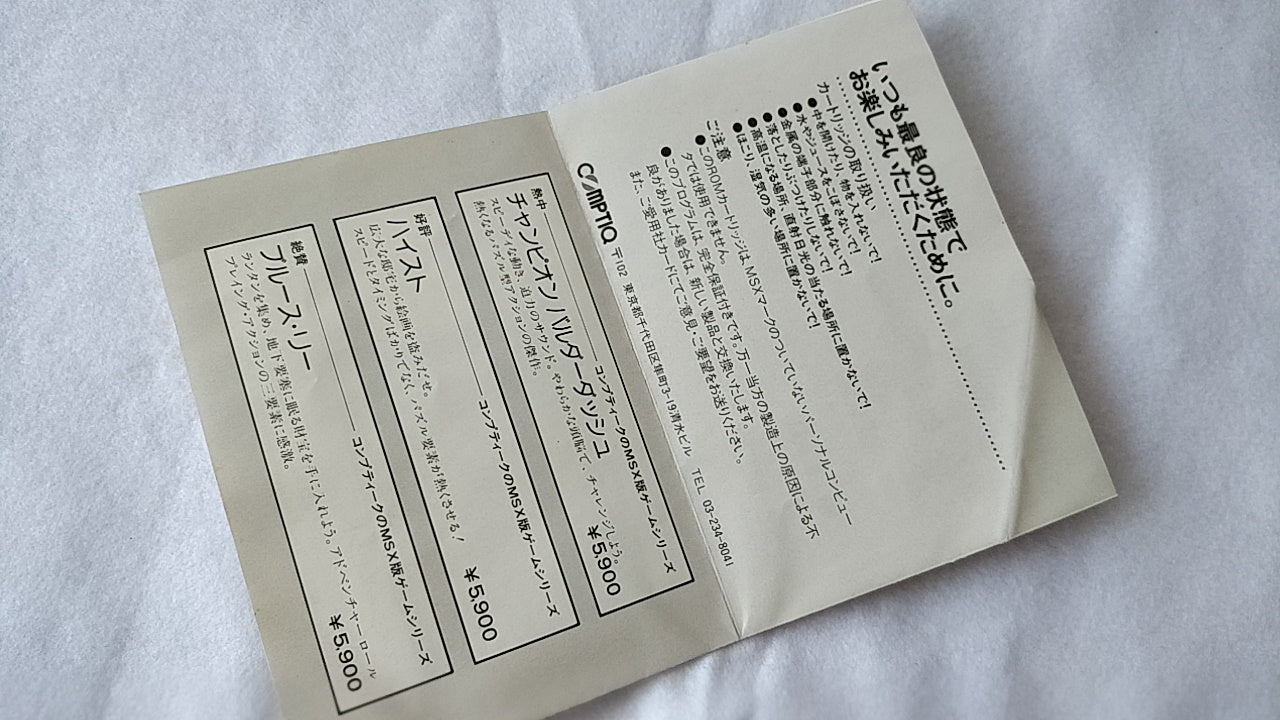 いつも最良の状態で
お楽しみいただくために。
カートリッジの取り扱い
●中を開けたり、物を入れないで!
●水やジュースをこぼさないで!
●金属の端子部分に触れないで!
●落としたりぶつけたりしないで!
●高温になる場所、直射日光の当たる場所に置かないで!
●ほこり、湿気の多い場所に置かないで!
ご注意
●このROMカートリッジは MSXマークのついていないパーソナルコンピュー
タでは使用できません。
●このプログラムは、完全保証付きです。万一当方の製造上の原因による不
良がありました場合は、新しい製品と交換いたします。
また、ご愛用社カードにてご意見、ご要望をお送りください。
COMPTIQ 〒102 東京都千代田区隼町3-19清水ビル TEL 03-234-8041
熱中 コンプティークのMSX版ゲームシリーズ
チャンピオン バルダーダッシュ
スピーディな動き、迫力のサウンド。やわらかな頭脳で、チャレンジしよう。
熱くなるパズル型アクションの傑作。
¥5,900
好評 コンプティークのMSX版ゲームシリーズ
ハイスト
広大な邸宅から絵画を盗みだせ。
スピードとタイミングばかりでない、パズル要素が熱くさせる!
¥5,900
絶賛 コンプティークのMSX版ゲームシリーズ
ブルース・リー
ランタンを集め、地下要塞に眠る財宝を手に入れよう。アドベンチャーロール
プレイング・アクションの三要素に感激。
¥5,900